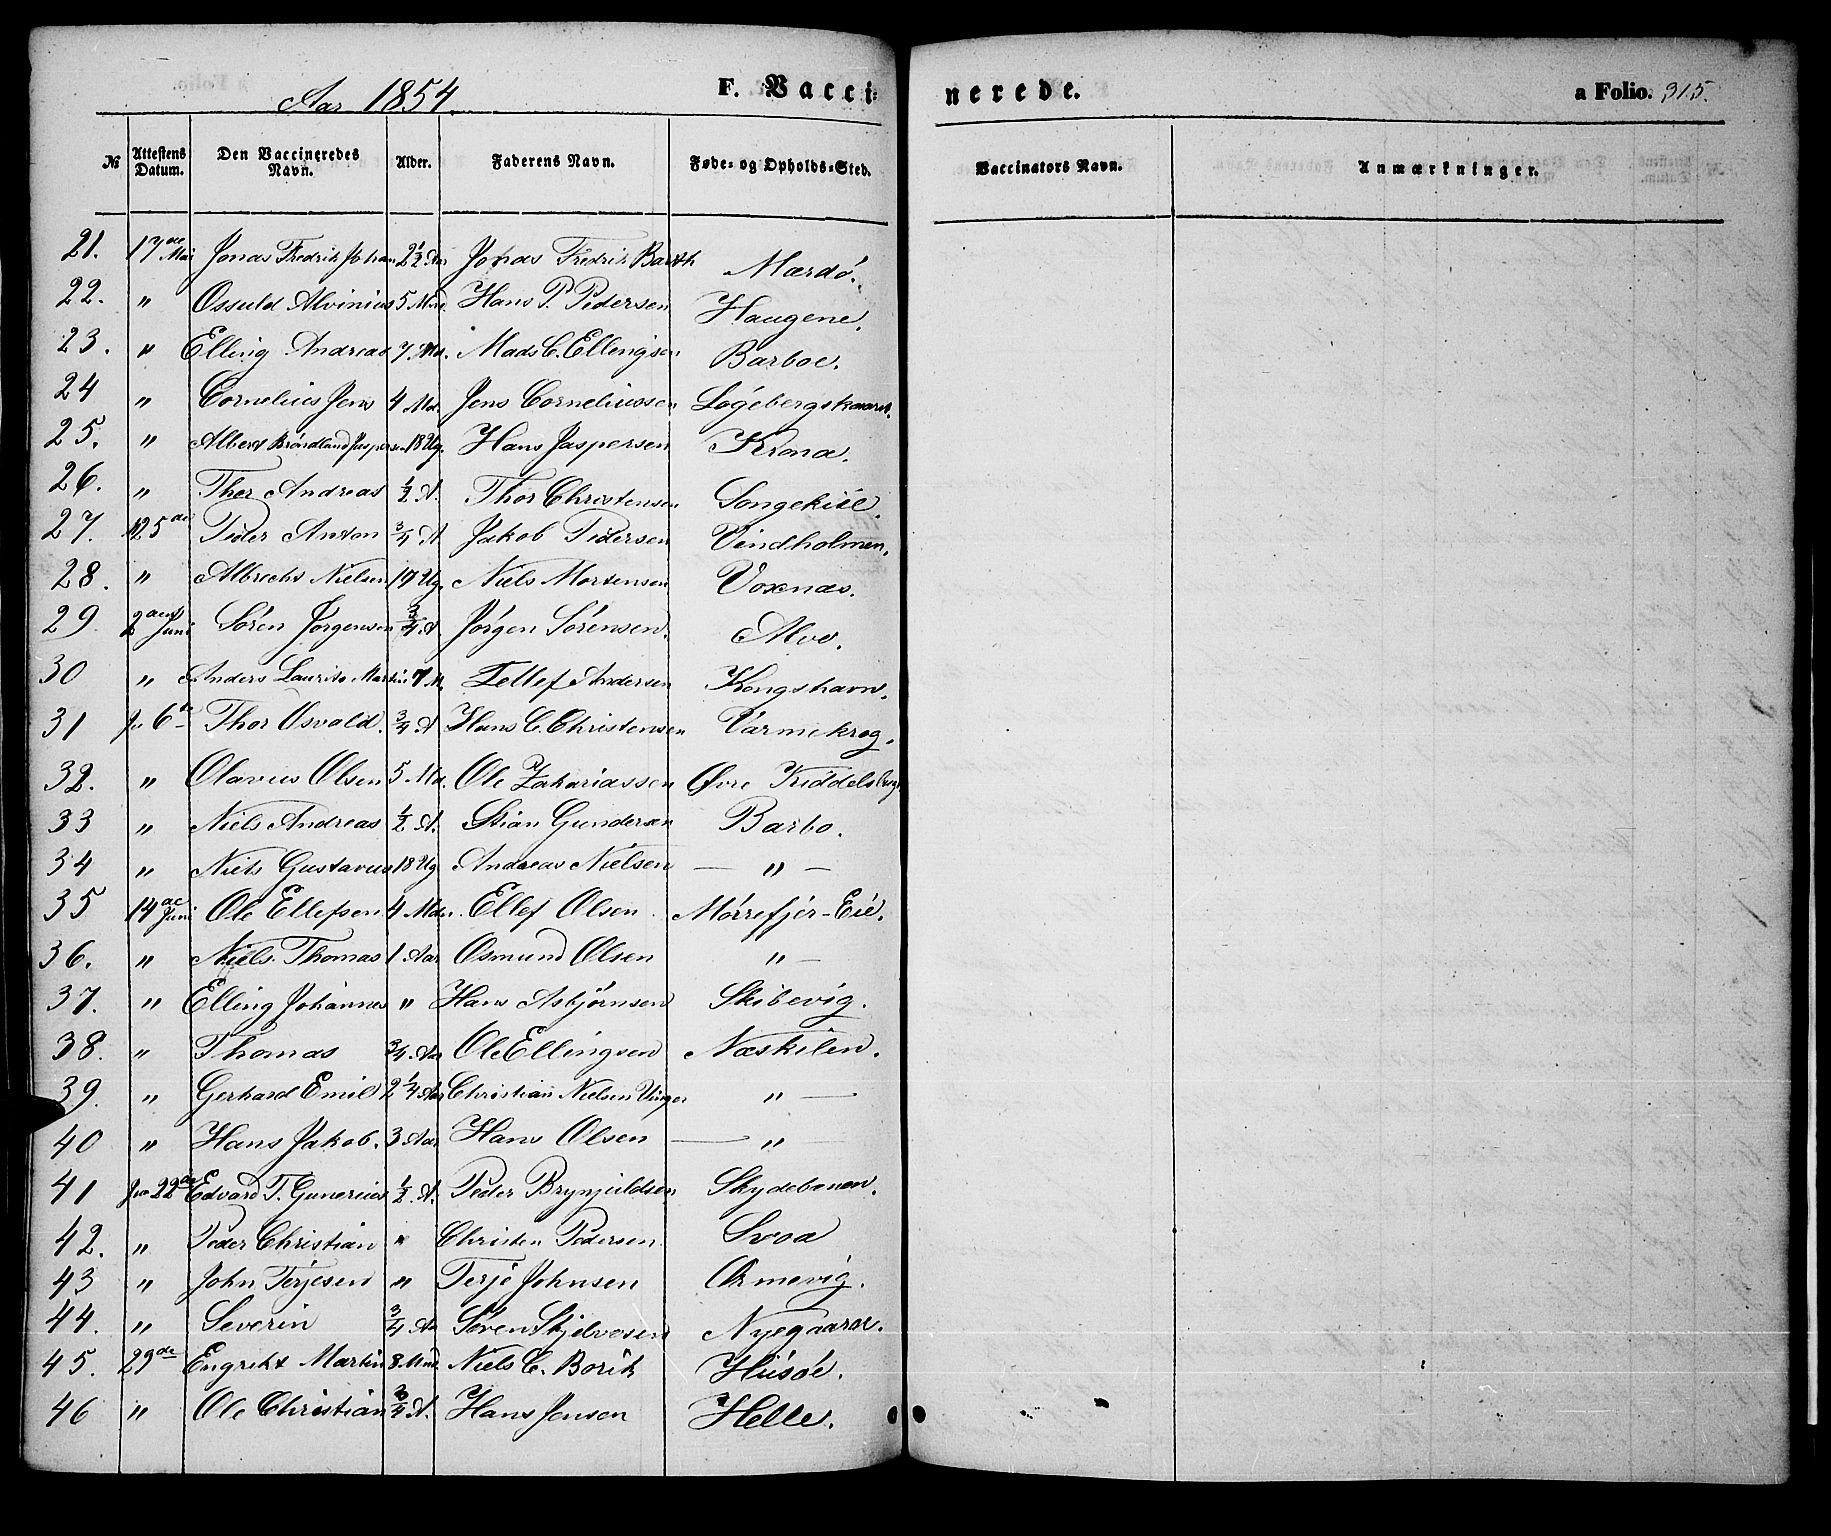 Aar 1854. F. Vacci= nerede. a Folio. 315.
№ Attestens Datum. Den Vaccineredes Navn. Alder. Faderens Navn. Føde- og Opholds-Sted. Vaccinators Navn. Anmærkninger.
21. 17de Mai Jonas Fredrik Johan 2½ Aar Johas Fredrik Barth Mærdö.
22. " Osvuld Alvinius 5 Mdr. Hans P. Pedersen Haugene.
23. " Elling Andreas 7. Md. Mads C. Ellengsen Barboe.
24 " Cornelius Jens 4 Mdr. Jens Corneliussen Løgebergskaaret.
25. " Albert Brøndlund Jaspersen 18 Ug. Hans Jaspersen Krona.
26. " Thor Andreas ½ A. Thor Christensen Songekiil.
27. 25de Peder Anton ¾ A Jakob Pedersen Vindholmen.
28. " Albrecht Nielsen 17 Ug. Niels Mortensen Voxnæs.
29 2den Juni Sören Jørgensen ¾ A. Jørgen Sørensen. Alve.
30 " Anders Laurits Martin 7 M. Tellef Andersen Kongshavn.
31 6te Thor Osvald. ¾ A Hans C. Christensen Varmekrog.
32. " Olavus Olsen 5 Md. Ole Zakariassen Øvre Kiddelsberg
33 " Niels Andreas ½ A. Stian Gundersen Barbo.
34 " Niels Gustavus 18 Ug Andreas Nielsen — " —
35 14de Juni Ole Ellefsen 4 Mdr. Ellef Olsen Mörrefjer-Eie.
36. " Niels Thomas 1 Aar Osmund Olsen " —
37. " Elling Johannes " Hans Asbjørnsen Skibevig.
38. " Thomas ¾ Aar Ole Ellingsen Næskilen.
39. " Gerhard Emil 2¼ Aar Christian Nielsen " —
40 " Hans Jakob. 3 Aar Hans Olsen — "
41 22de Edvard T. Gunerius ½ A. Peder Brynjuldsen Skydebanen.
42. " Peder Christian " Christen Pedersen Svoa
43 " John Terjesen " Terje Johnsen Ormevig.
44. " Severin ¾ Aar Søren Nyegaard.
45. 29de Engrekt Martin 8. Mnd. Niels C. Borik Hüsöe.
46 " Ole Christian ¾ A. Hans Jensen Helle.